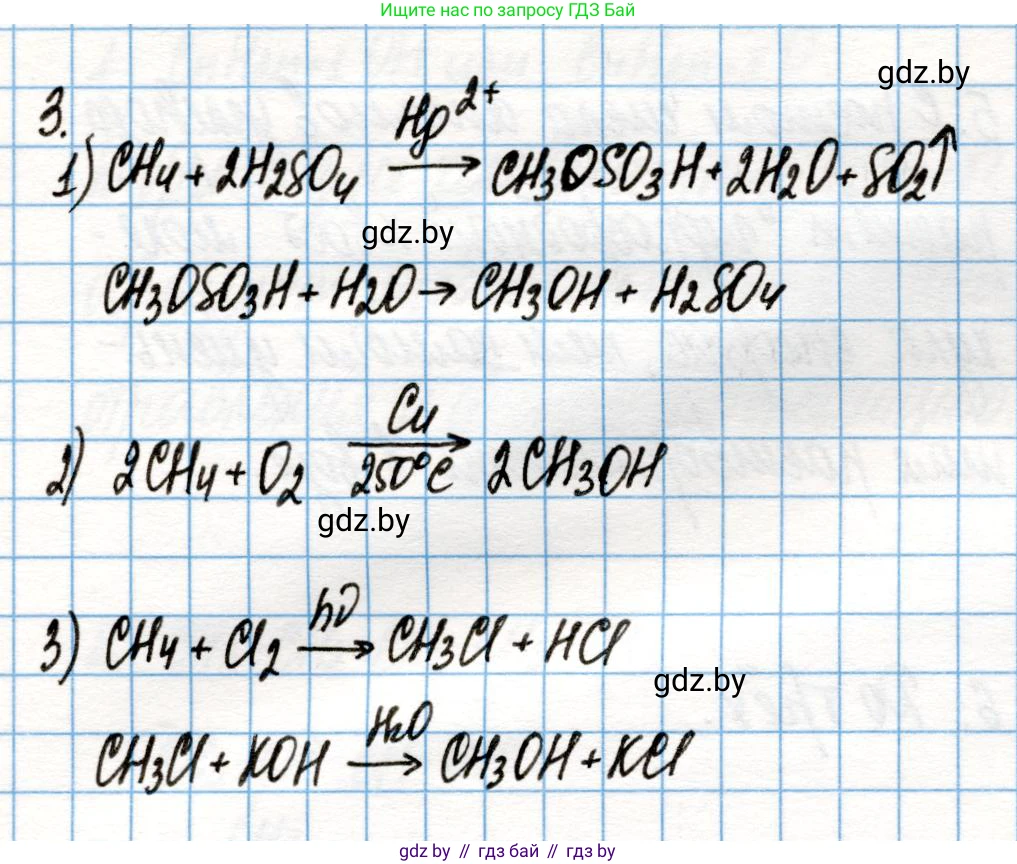 Ищите нас по запросу ГДЗ Бай
gdz.by
3.
1) CH₄ + 2H₂SO₄ —Hg²⁺→ CH₃OSO₃H + 2H₂O + SO₂↑
gdz.by
CH₃OSO₃H + H₂O → CH₃OH + H₂SO₄
2) 2CH₄ + O₂ —Cu, 250°C→ 2CH₃OH
gdz.by
3) CH₄ + Cl₂ —hν→ CH₃Cl + HCl
gdz.by
CH₃Cl + KOH —H₂O→ CH₃OH + KCl
gdz.by // гдз бай // гдз by